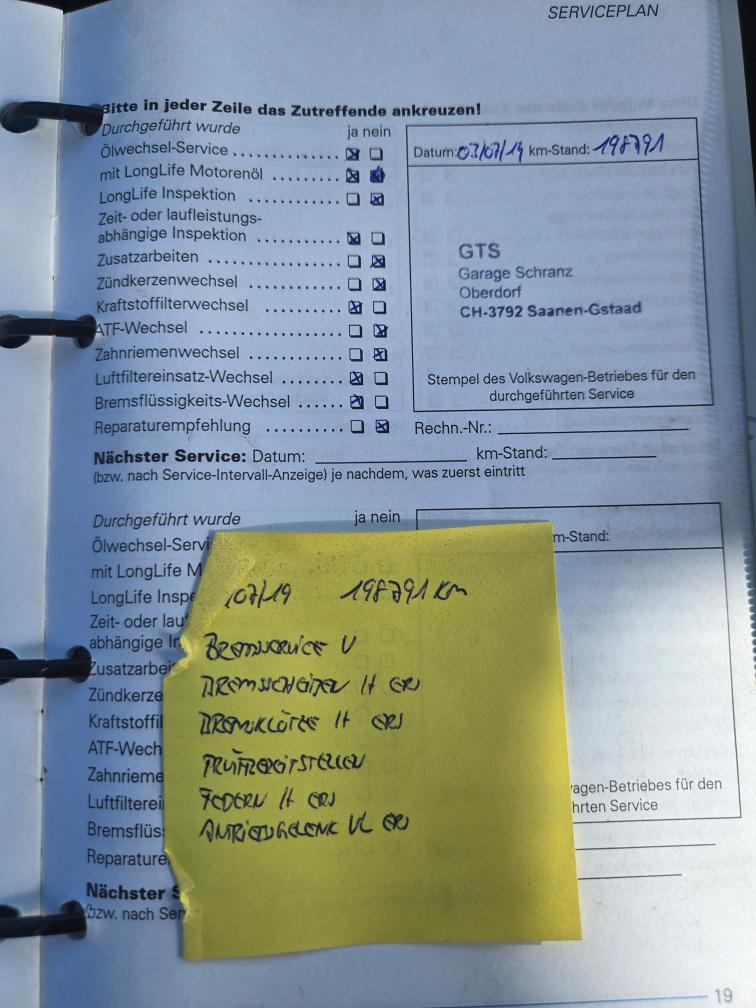 SERVICEPLAN
Bitte in jeder Zeile das Zutreffende ankreuzen!
Durchgeführt wurde ja nein
Ölwechsel-Service
mit LongLife Motorenöl
LongLife Inspektion
Zeit- oder laufleistungs-
abhängige Inspektion
Zusatzarbeiten
Zündkerzenwechsel
Kraftstoffilterwechsel
ATF-Wechsel
Zahnriemenwechsel
Luftfiltereinsatz-Wechsel
Bremsflüssigkeits-Wechsel
Reparaturempfehlung
Datum: 03/07/19 km-Stand: 198791
GTS
Garage Schranz
Oberdorf
CH-3792 Saanen-Gstaad
Stempel des Volkswagen-Betriebes für den
durchgeführten Service
Rechn.-Nr.:
Nächster Service: Datum: km-Stand:
(bzw. nach Service-Intervall-Anzeige) je nachdem, was zuerst eintritt
Durchgeführt wurde ja nein
Ölwechsel-Servi
mit LongLife M
LongLife Inspe
Zeit- oder lau
abhängige In
Zusatzarbei
Zündkerze
Kraftstoffil
ATF-Wech
Zahnrieme
Luftfilterei
Bremsflüs
Reparature
m-Stand:
agen-Betriebes für den
hrten Service
Nächster S
(bzw. nach Ser
/07/19 198791 Km
BREMSSERVICE V
BREMSSCHEIBEN H ERS
BREMSKLÖTZE H ERS
FEDERN H ERS
ANTRIEBSGELENK VL ERS
19